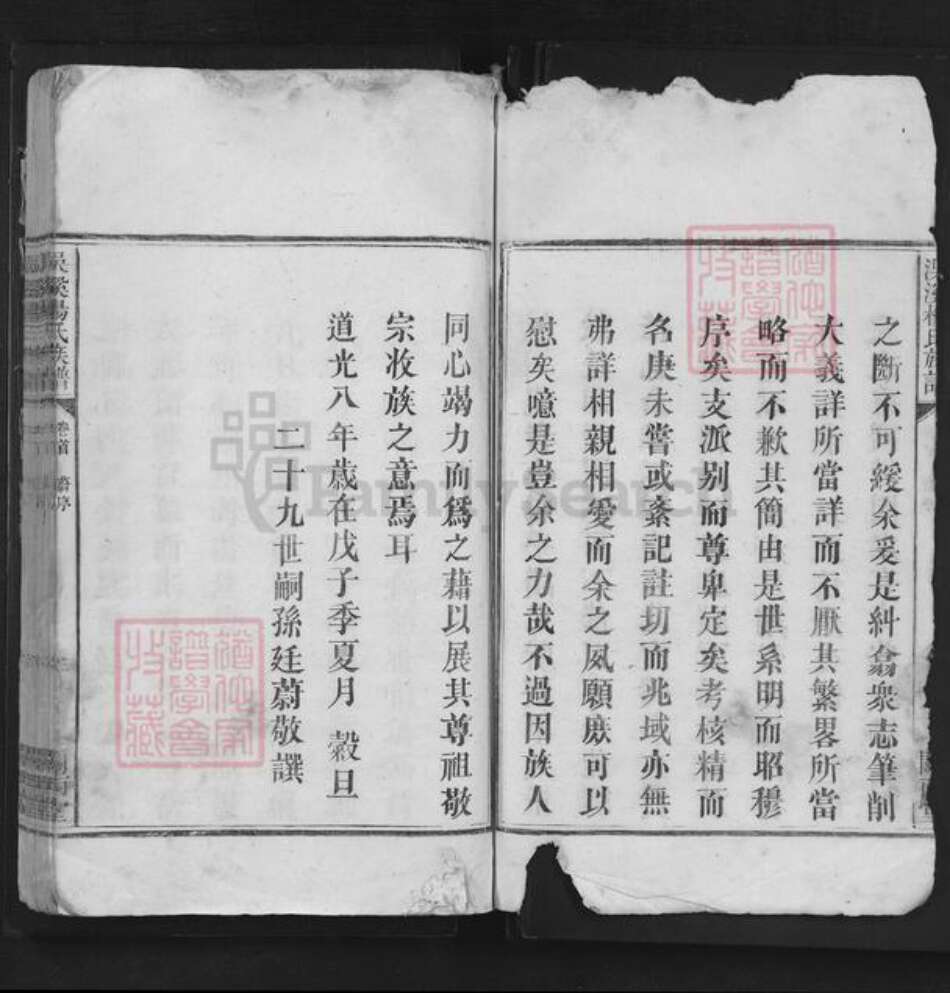 之斷不可緩余爰是糾翕衆志筆削
大義詳所當詳而不厭其繁畧所當
略而不歉其簡由是世系明而昭穆
序矣支派别而尊卑定矣考核精而
名庚未嘗或紊記註切而兆域亦無
弗詳相親相愛而余之夙願庶可以
慰矣噫是豈余之力哉不過因族人
同心竭力而爲之藉以展其尊祖敬
宗收族之意焉耳
道光八年歲在戊子季夏月 穀旦
二十九世嗣孫廷蔚敬譔
楊氏族譜
卷首
FamilySearch
譜學會
收藏
譜學會
收藏